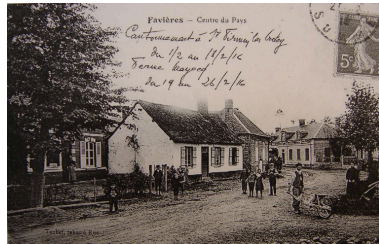 Favières — Centre du Pays
Cantonnement à St Firmin les Crotoy
du 1/2 au 18/2/16
Ferme
du 19 au 26/2/16